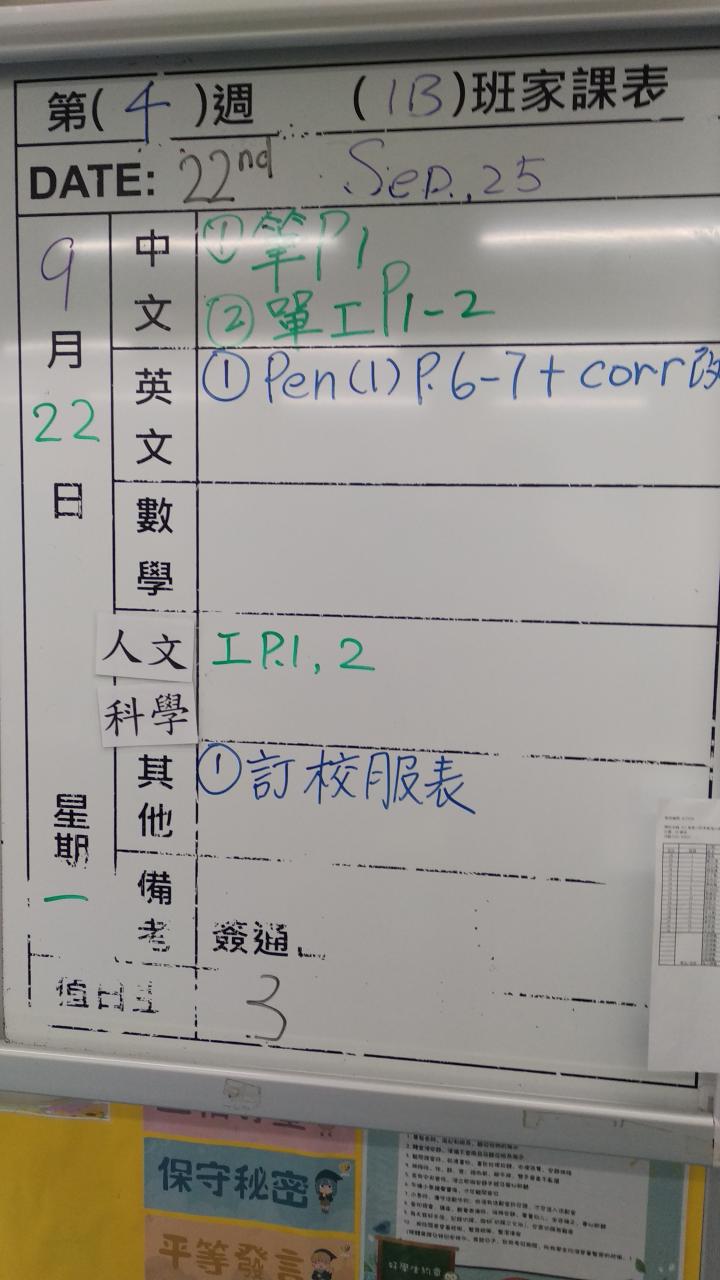 第(4)週 (1B)班家課表
DATE: 22nd Sep., 25
9月22日 星期一
中文 ①筆P1
②單工P1-2
英文 ①Pen(1) P.6-7+corr改
數學
人文科學 工P.1, 2
其他 ①訂校服表
備考 簽通
值日生 3
保守秘密
平等發言
好學生約章